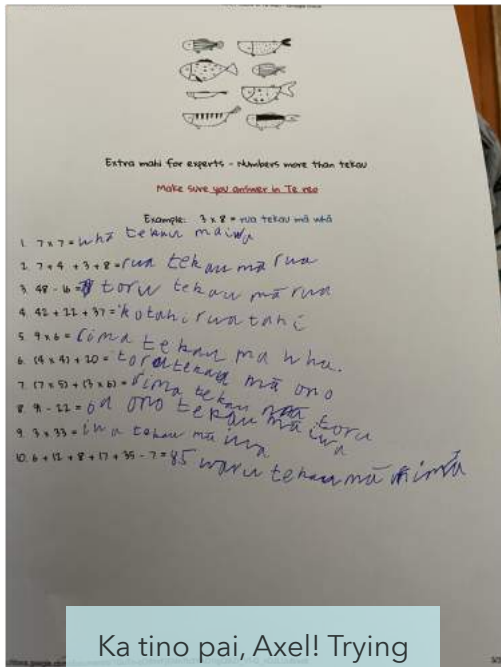 Extra mahi for experts - Numbers more than tekau
Make sure you answer in Te reo
Example: 3 x 8 = rua tekau mā whā
1. 7 x 7 = whā tekau ma iwa
2. 7 + 4 + 3 + 8 = rua tekau mā rua
3. 48 - 16 = toru tekau mā rua
4. 42 + 22 + 37 = kotahi rua tahi
5. 9 x 6 = rima tekau ma wha.
6. (4 x 4) + 20 = toru tekau mā ono
7. (7 x 5) + (3 x 6) = rima tekau mā toru
8. 91 - 22 = ono tekau mā iwa
9. 3 x 33 = iwa tekau mā iwa
10. 6 + 12 + 8 + 17 + 35 - 7 = 85 waru tekau mā rimā
Ka tino pai, Axel! Trying